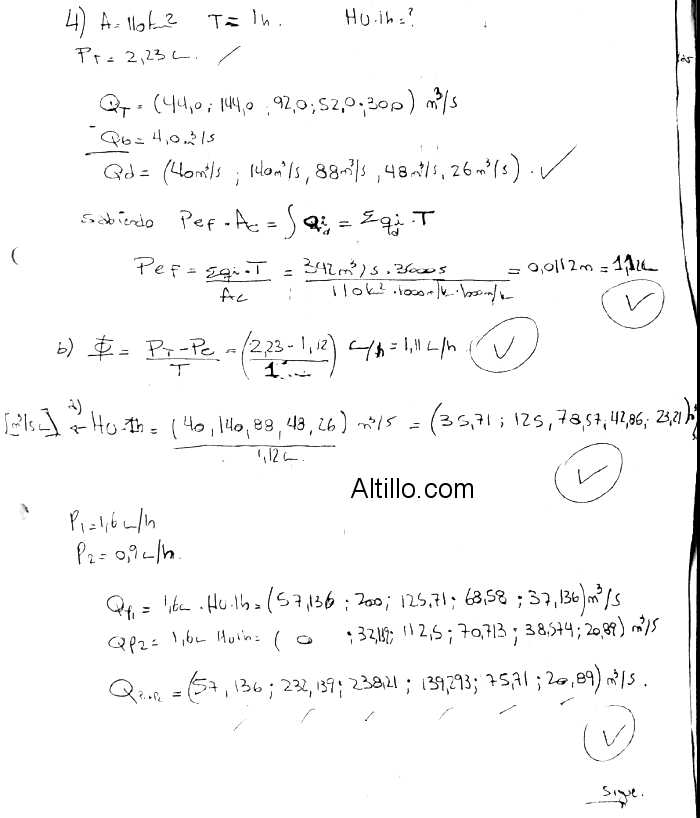 4) A=110k² T= 1h. HU.1h=?
PT= 2,23c.
QT= (44,0; 144,0; 92,0; 52,0; 30,0) m³/s
- Qb= 4,0m³/s
Qd= (40m³/s ; 140m³/s, 88m³/s, 48m³/s, 26m³/s).
sabiendo Pef. Ac = ∫Qid = Σqid.T
Pef= Σqi.T / Ac = 342m³/s.3600s / 110k².1000m/k.1000m/k = 0,0112m = 1,12c
b) Φ= PT-Pe / T = (2,23-1,12 / 1) c/h = 1,11c/h
[m³/s c] ← HU.1h= (40, 140, 88, 48, 26) m³/s / 1,12c = (35,71; 125, 78,57, 42,86; 23,21)
Altillo.com
P1=1,6c/h
P2= 0,9c/h.
Qp1= 1,6c.HU.1h=(57,136; 200; 125,71; 68,58; 37,136)m³/s
QP2= 1,6c HU1h= ( 0 ; 32,119; 112,5; 70,713; 38,574; 20,89) m³/s
= (57,136; 232,139; 238,21; 139,293; 75,71; 20,89) m³/s.
Sigue.